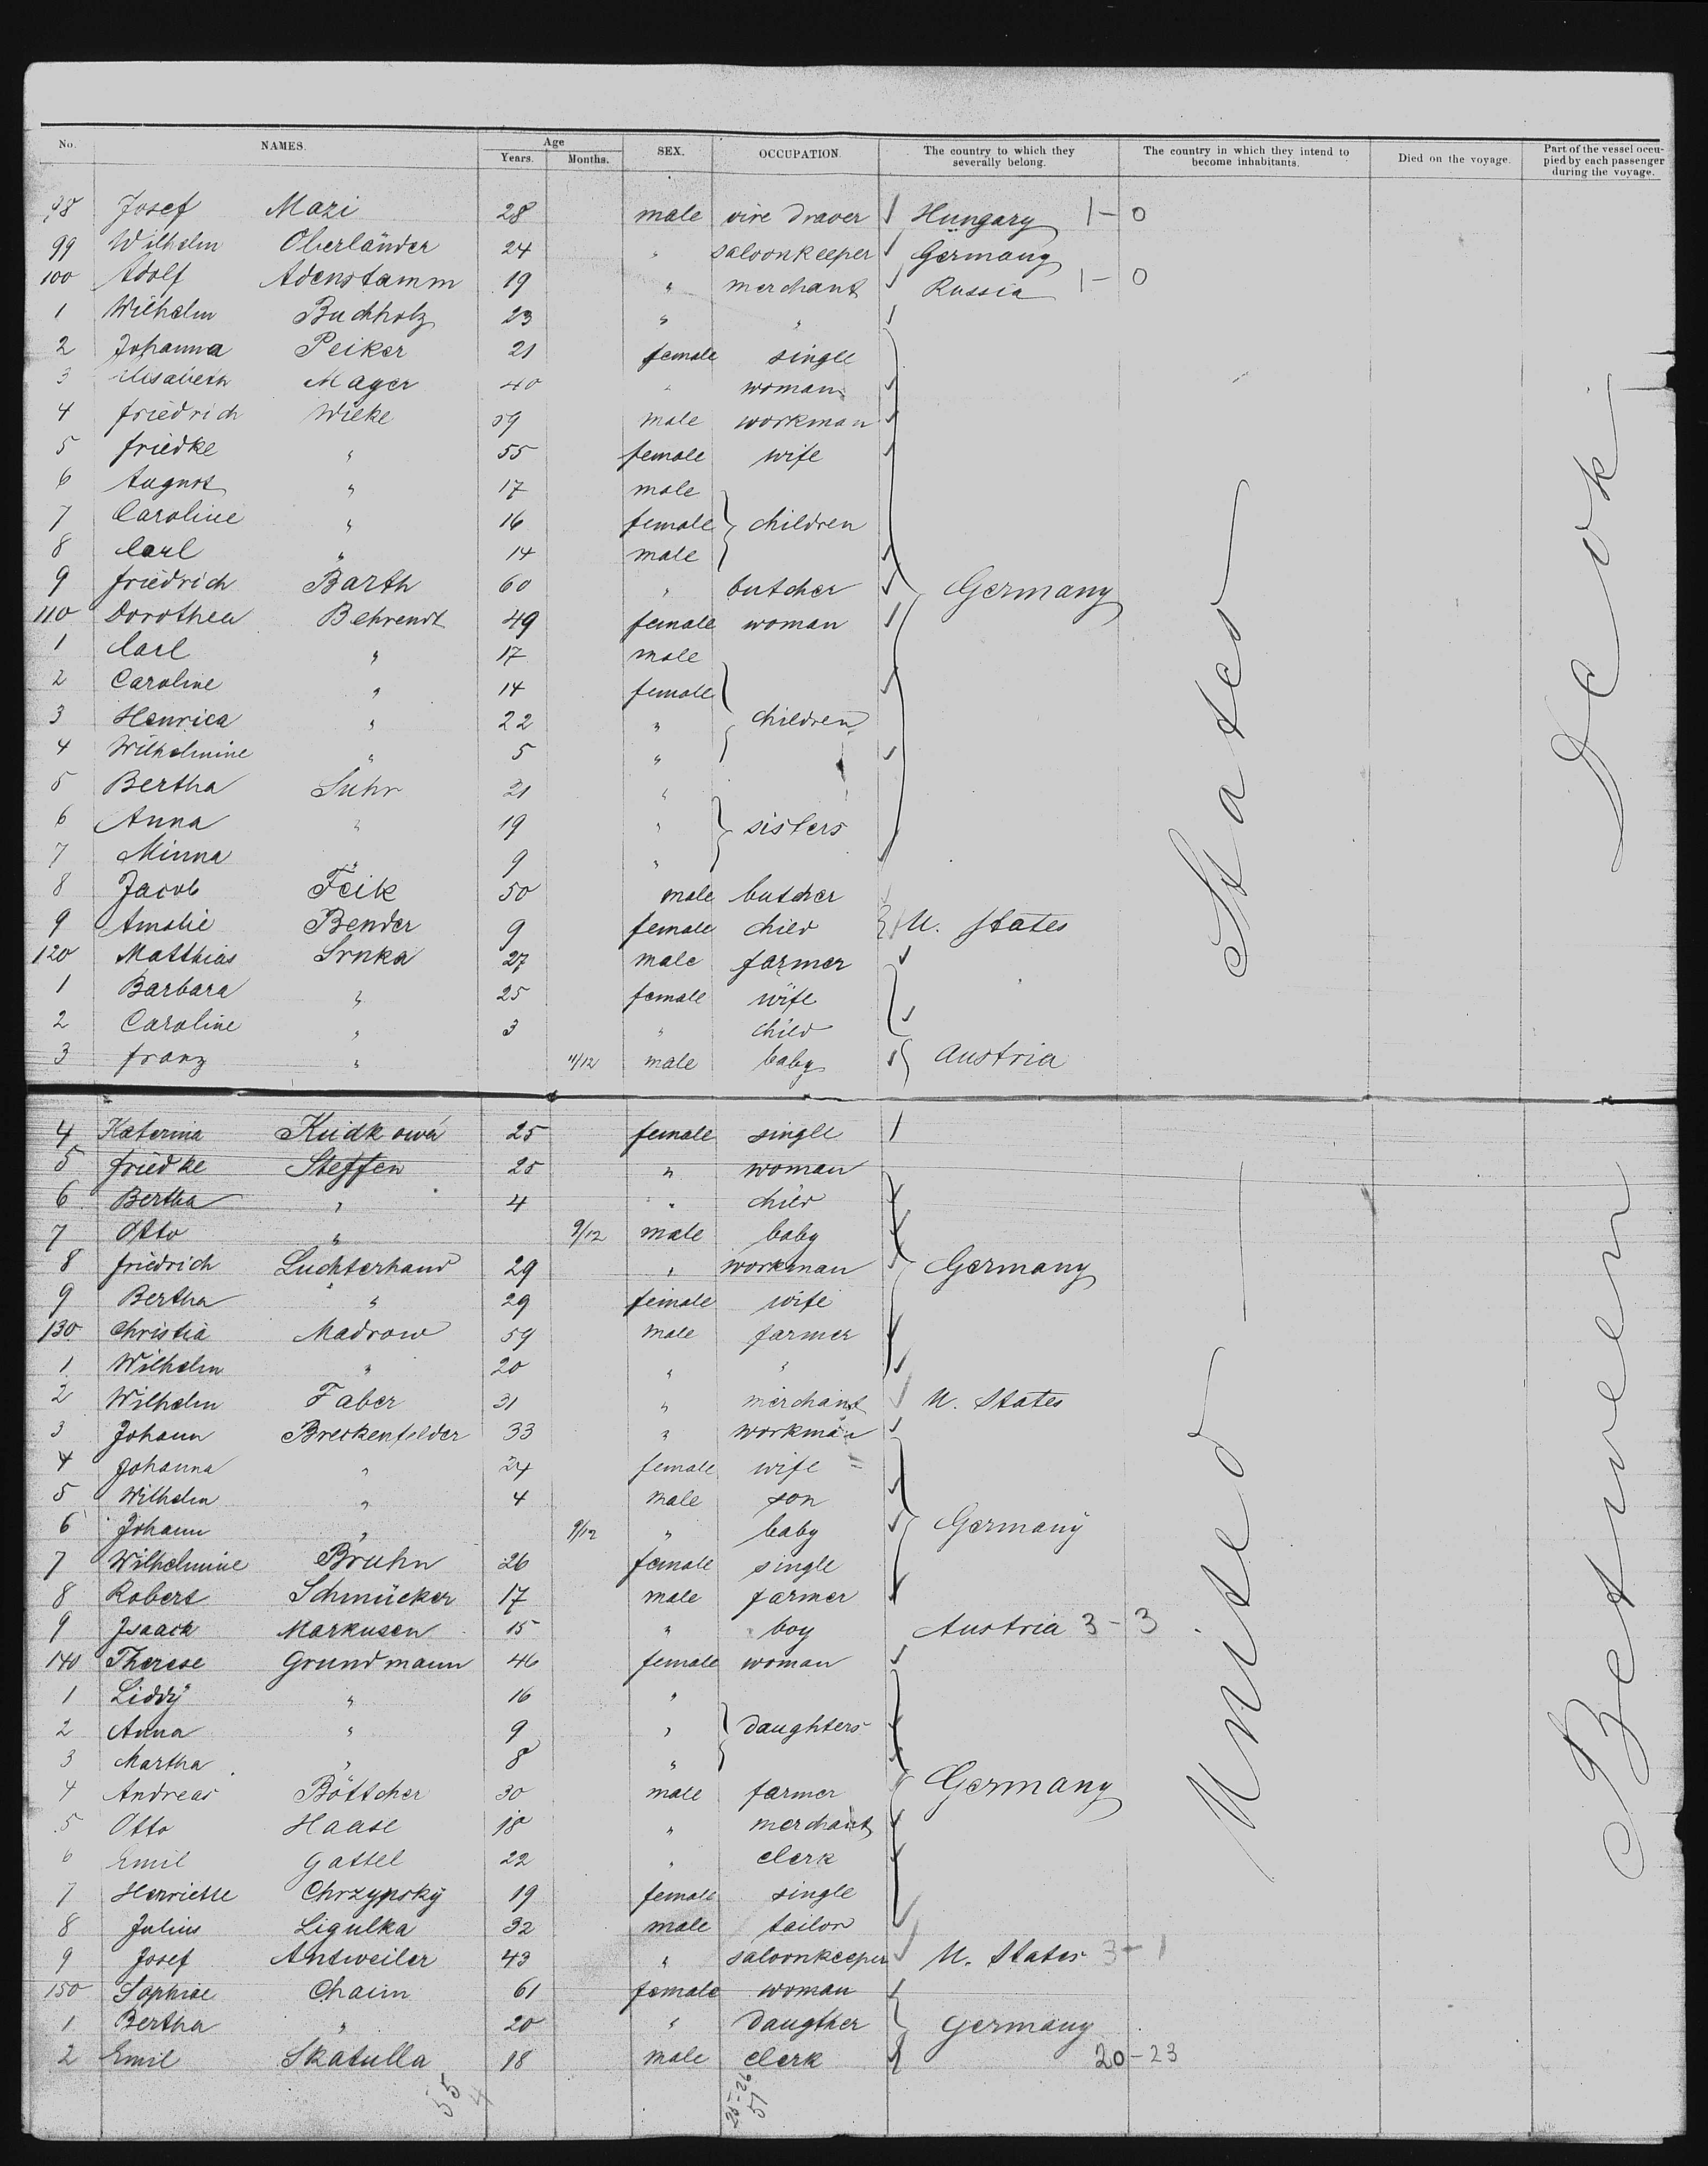 No. NAMES. Age Years. Months. SEX. OCCUPATION. The country to which they severally belong. The country in which they intend to become inhabitants. Died on the voyage. Part of the vessel occupied by each passenger during the voyage.
98 Josef Mazi 28 male vire draver Hungary 1-0
99 Wilhelm Oberländer 24 " saloonkeeper Germany
100 Adolf Adenstamm 19 " merchant Russia 1-0
1 Wilhelm Buchholz 23 " "
2 Johanna Peiker 21 female single
3 Elisabeth Mayer 40 " woman
4 friedrich Wieke 59 male workman
5 friedke " 55 female wife
6 August " 17 male
7 Caroline " 16 female } children
8 Carl " 14 male
9 friedrich Barth 60 " butcher Germany
110 Dorothea Behrendt 49 female woman
1 Carl " 17 male
2 Caroline " 14 female
3 Henrica " 22 " } children
4 Wilhelmine " 5 "
5 Bertha Suhr 21 "
6 Anna " 19 " } sisters
7 Minna " 9 "
8 Jacob Feik 50 male butcher
9 Amalie Bender 9 female child U. States
120 Matthias Srnka 27 male farmer
1 Barbara " 25 female wife
2 Caroline " 3 " child
3 franz " 11/12 male baby Austria
4 Katerina Kudkowá 25 female single
5 friedke Steffen 25 " woman
6 Bertha " 4 " child
7 Otto " 9/12 male baby
8 friedrich Luchterhand 29 " workman Germany
9 Bertha " 29 female wife
130 Christia Madrow 59 male farmer
1 Wilhelm " 20 " "
2 Wilhelm Faber 31 " merchant U. States
3 Johann Breckenfelder 33 " workman
4 Johanna " 24 female wife
5 Wilhelm " 4 male son
6 Johann " 9/12 " baby Germany
7 Wilhelmine Bruhn 26 female single
8 Robert Schmücker 17 male farmer
9 Isaack Markusen 15 " boy Austria 3-3
140 Therese Grundmann 46 female woman
1 Liddy " 16 "
2 Anna " 9 " } daughters
3 Martha " 8 "
4 Andreas Böttcher 30 male farmer Germany
5 Otto Haase 18 " merchant
6 Emil Gattel 22 " clerk
7 Henriette Chrzypsky 19 female single
8 Julius Ligulka 32 male tailor
9 Josef Antweiler 43 " saloonkeeper U. States 3-1
150 Sophie Chaim 61 female woman
1 Bertha " 20 " daugther Germany
2 Emil Skatulla 18 male clerk 20-23
55
4
25-26
51
United States
Between Deck